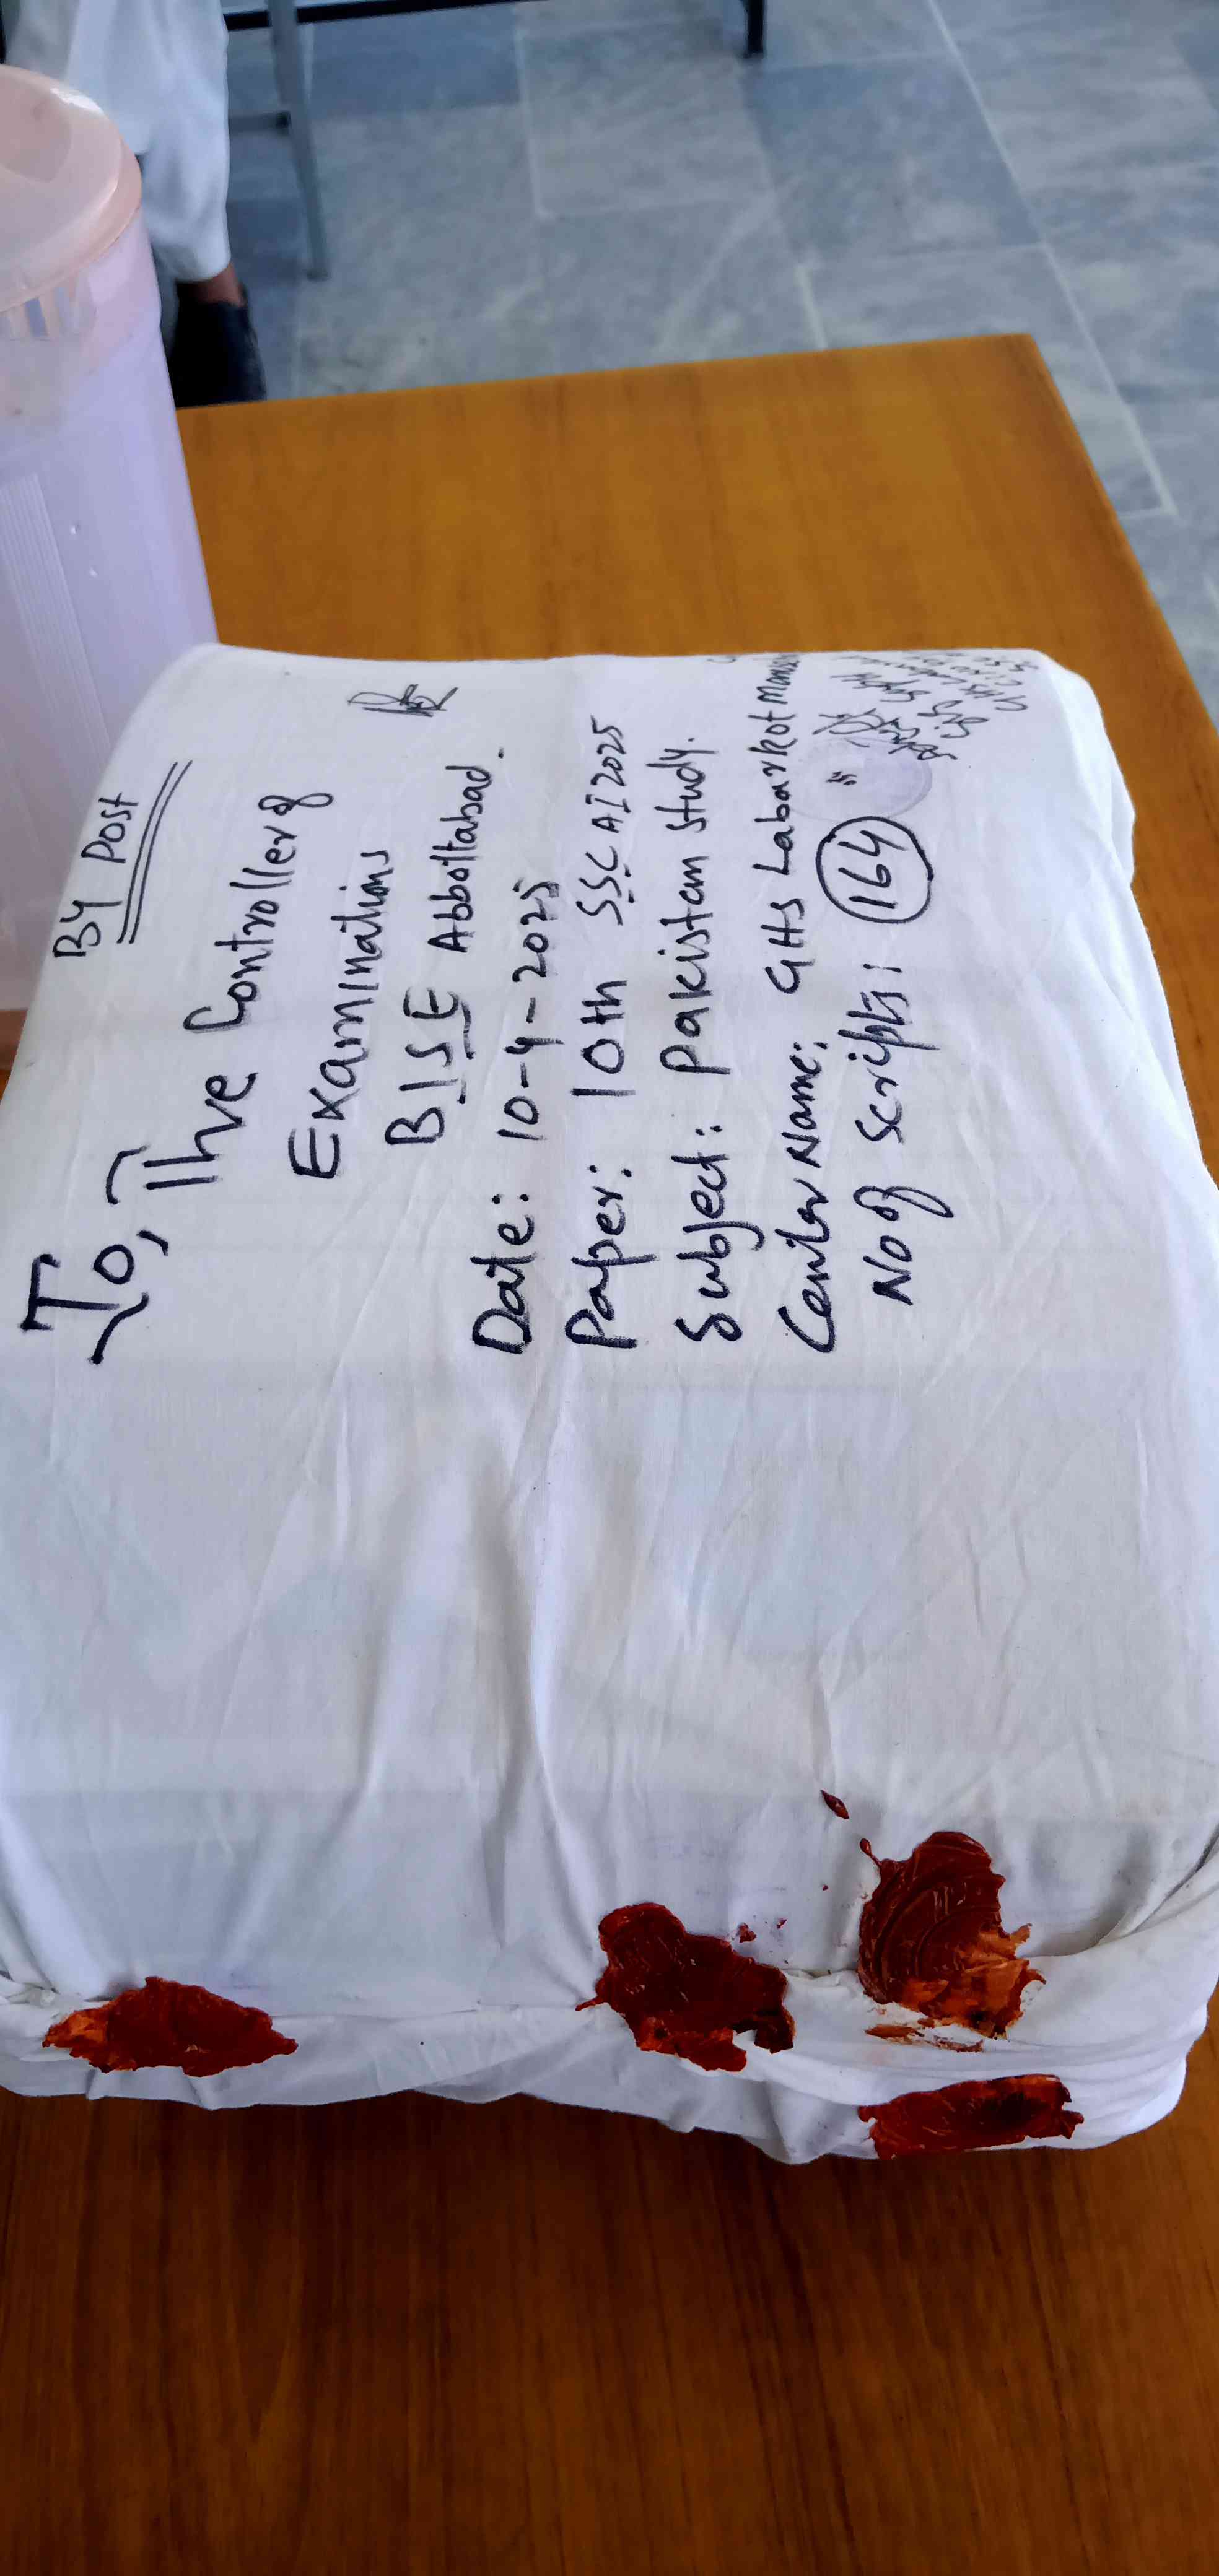 BY Post
To,
The Controller of
Examinations
BISE Abbottabad.
Date: 10-4-2025
Paper: 10th SSC AI 2025
Subject: Pakistan study.
Center Name: GHS Labarkot
No of Scripts: 164